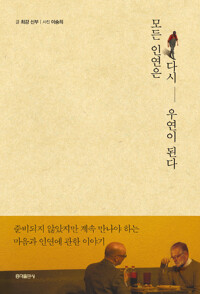 모든 인연은
다시 — 우연이 된다
글 최강 신부 | 사진 이승희
준비되지 않았지만 계속 만나야 하는
마음과 인연에 관한 이야기